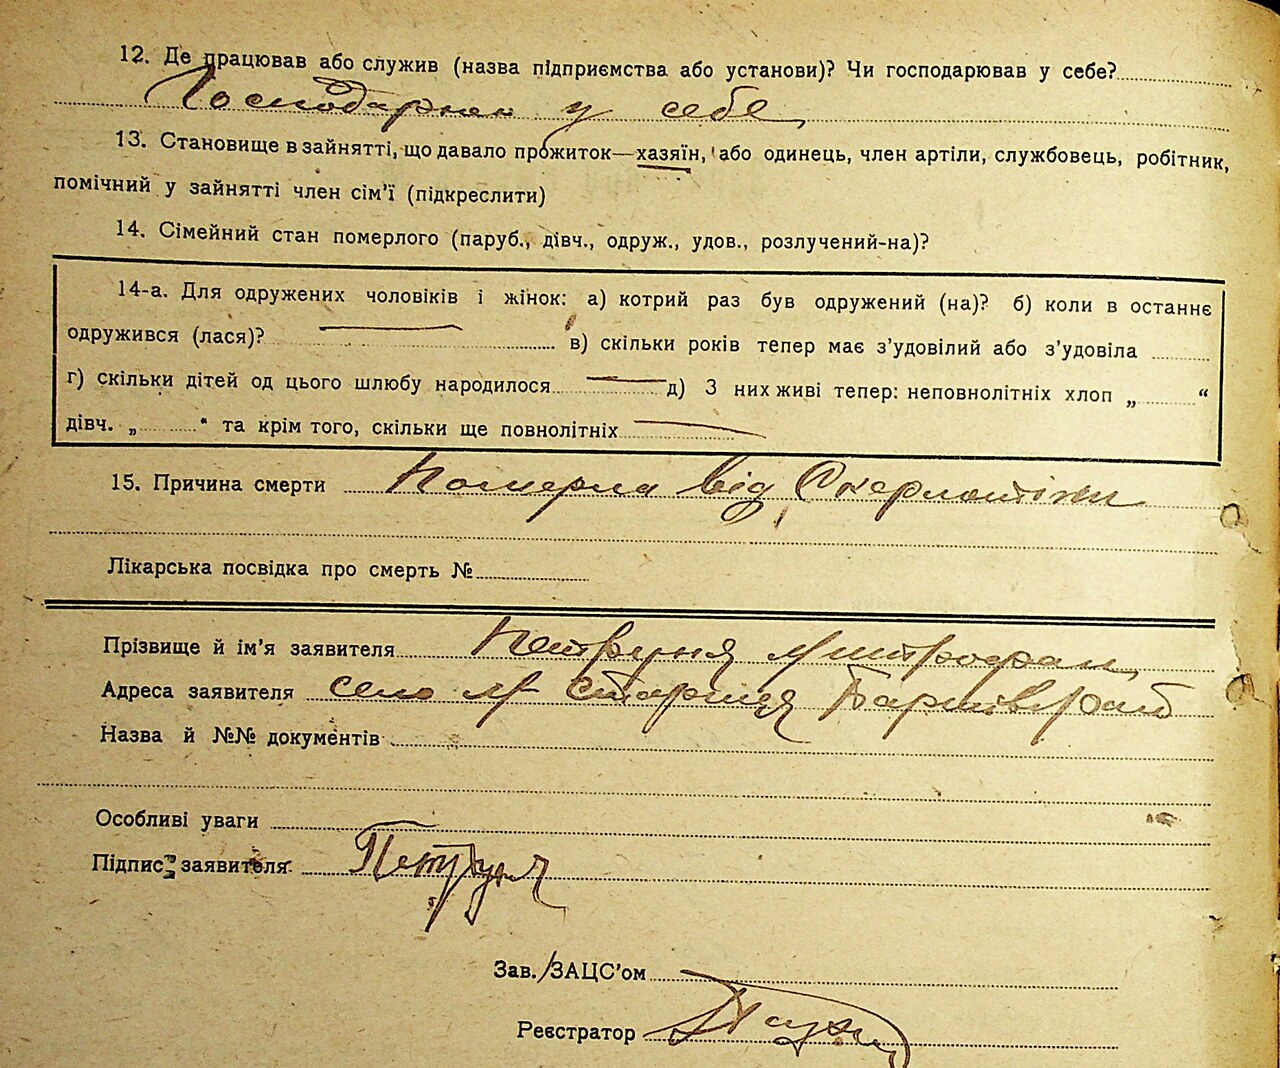 12. Де працював або служив (назва підприємства або установи)? Чи господарював у себе?
у себе
13. Становище в зайнятті, що давало прожиток—хазяїн, або одинець, член артіли, службовець, робітник,
помічний у зайнятті член сім'ї (підкреслити)
14. Сімейний стан померлого (паруб., дівч., одруж., удов., розлучений-на)?
14-а. Для одружених чоловіків і жінок: а) котрий раз був одружений (на)? б) коли в останнє
одружився (лася)? в) скільки років тепер має з'удовілий або з'удовіла
г) скільки дітей од цього шлюбу народилося д) З них живі тепер: неповнолітніх хлоп „ “
дівч. „ “ та крім того, скільки ще повнолітніх
15. Причина смерти Померла від Скерлотіни
Лікарська посвідка про смерть №
Прізвище й ім'я заявителя Петруня Митрофан
Адреса заявителя село
Назва й №№ документів
Особливі уваги
Підпис заявителя Петруня
Зав./ЗАЦС'ом
Реєстратор